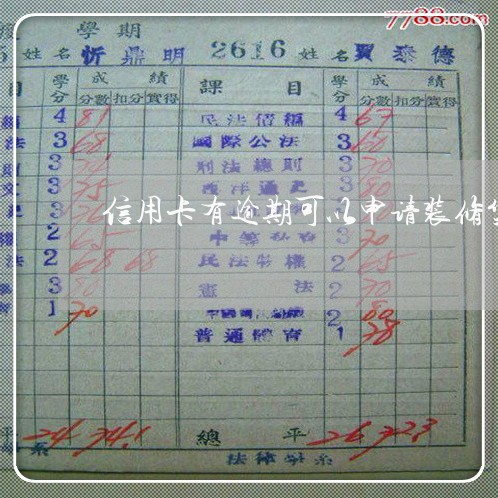 7788.com
學期
姓名 忻鼎明 2616 姓名 賈泰德
目 學分 成績 課目 學分 成績
分數 扣分 實得 分數 扣分 實得
4 81 民法債編 4 67
法 3 68 國際公法 3 60
3 刑法總則 3 70
文 3 75 西洋通史 3 80
信用卡有逾期可以申请装修贷
2 65 3 70
法 2 68 68 民法物權 2 65
3 80 憲法 2 70
育 1 70 2 80
普通體育 1 78
平 24 74.1 總平 26 72.3
系 法律學系